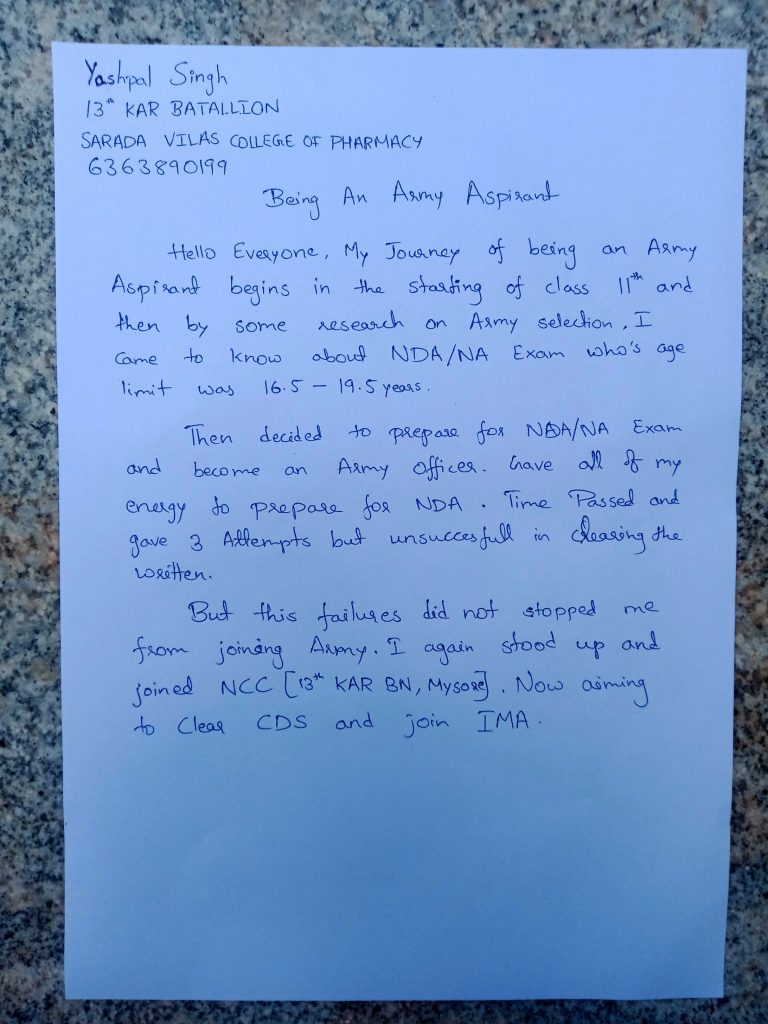 Yashpal Singh
13th KAR BATALLION
SARADA VILAS COLLEGE OF PHARMACY
6363890199
Being An Army Aspirant
Hello Everyone, My Journey of being an Army
Aspirant begins in the starting of class 11th and
then by some research on Army selection, I
came to know about NDA/NA Exam who's age
limit was 16.5 – 19.5 years.
Then decided to prepare for NDA/NA Exam
and become an Army Officer. Gave all of my
energy to prepare for NDA. Time Passed and
gave 3 Attempts but unsuccesfull in clearing the
written.
But this failures did not stopped me
from joining Army. I again stood up and
joined NCC [13th KAR BN, Mysore]. Now aiming
to Clear CDS and join IMA.